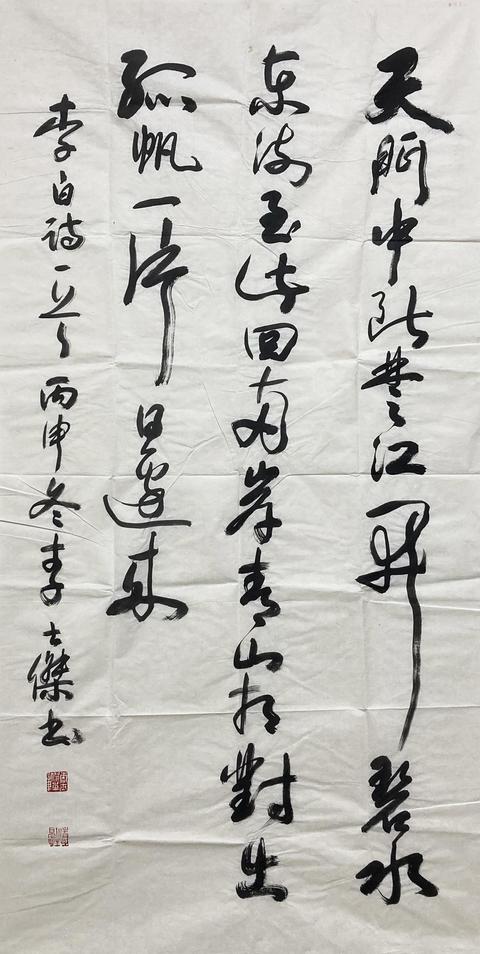 天門中斷楚江開碧水
東流至此回兩岸青山相對出
孤帆一片日邊來
李白詩一首丙申冬李士傑書